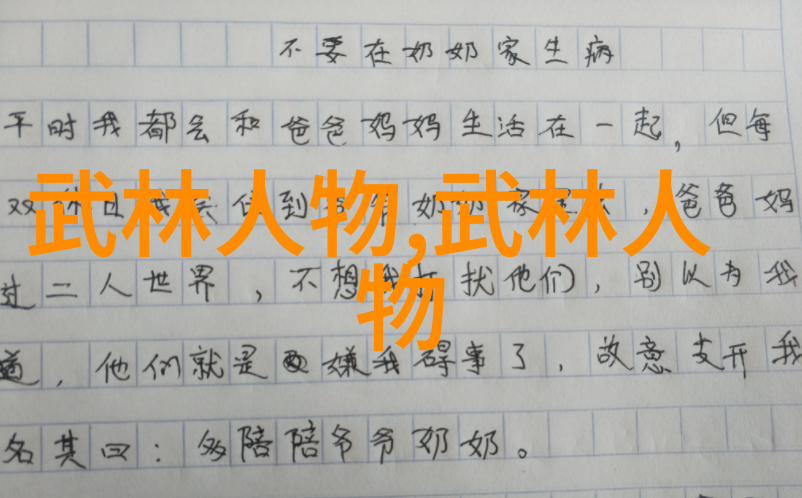 不要在奶奶家生病
平时我都会和爸爸妈妈生活在一起，但每
双休日我会住到爷爷奶奶家里去，爸爸妈
过二人世界，不想我打扰他们，别以为我
道，他们就是嫌我碍事了，故意支开我
名其曰：多陪陪爷爷奶奶。
武林人物,武林人
物